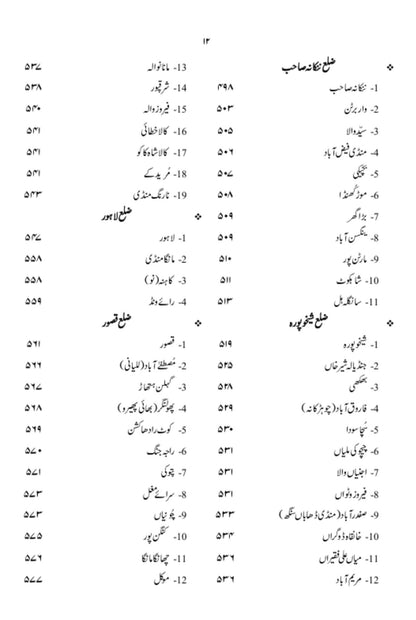 ۱۲
❖ ضلع ننکانہ صاحب
1- ننکانہ صاحب ۴۹۸
2- واربرٹن ۵۰۳
3- سیّدوالا ۵۰۵
4- منڈی فیض آباد ۵۰۶
5- بُچیکی ۵۰۷
6- موڑکھنڈا ۵۰۸
7- بڑا گھر ۵۰۹
8- ینگسن آباد ۵۰۹
9- مارٹن پور ۵۱۰
10- شاہکوٹ ۵۱۱
11- سانگلہ ہل ۵۱۳
❖ ضلع شیخوپورہ
1- شیخوپورہ ۵۱۹
2- جنڈیالہ شیرخاں ۵۲۵
3- بھکھی ۵۲۸
4- فاروق آباد (چوہڑکانہ) ۵۲۹
5- سُچاسودا ۵۳۰
6- چیچو کی ملیاں ۵۳۱
7- اجنیاں والا ۵۳۱
8- فیروزوٹواں ۵۳۱
9- صفدرآباد (منڈی ڈھاباں سنگھ) ۵۳۳
10- خانقاہ ڈوگراں ۵۳۴
11- میاں علی فقیراں ۵۳۶
12- مریم آباد ۵۳۶
13- مانانوالہ ۵۳۷
14- شرقپور ۵۳۸
15- فیروزوالہ ۵۴۰
16- کالاخطائی ۵۴۱
17- کالاشاہ کاکو ۵۴۱
18- مُریدکے ۵۴۱
19- نارنگ منڈی ۵۴۳
❖ ضلع لاہور
1- لاہور ۵۴۷
2- مانگا منڈی ۵۵۸
3- کاہنہ (نو) ۵۵۸
4- رائے ونڈ ۵۵۹
❖ ضلع قصور
1- قصور ۵۶۱
2- مُصطفےٰ آباد (للیانی) ۵۶۶
3- گہلن ہتھاڑ ۵۶۷
4- پھولنگر (بھائی پھیرو) ۵۶۸
5- کوٹ رادھاکشن ۵۶۹
6- راجہ جنگ ۵۷۰
7- پتوکی ۵۷۱
8- سرائے مغل ۵۷۳
9- چُونیاں ۵۷۳
10- کنگن پور ۵۷۵
11- چھانگامانگا ۵۷۶
12- موکل ۵۷۷